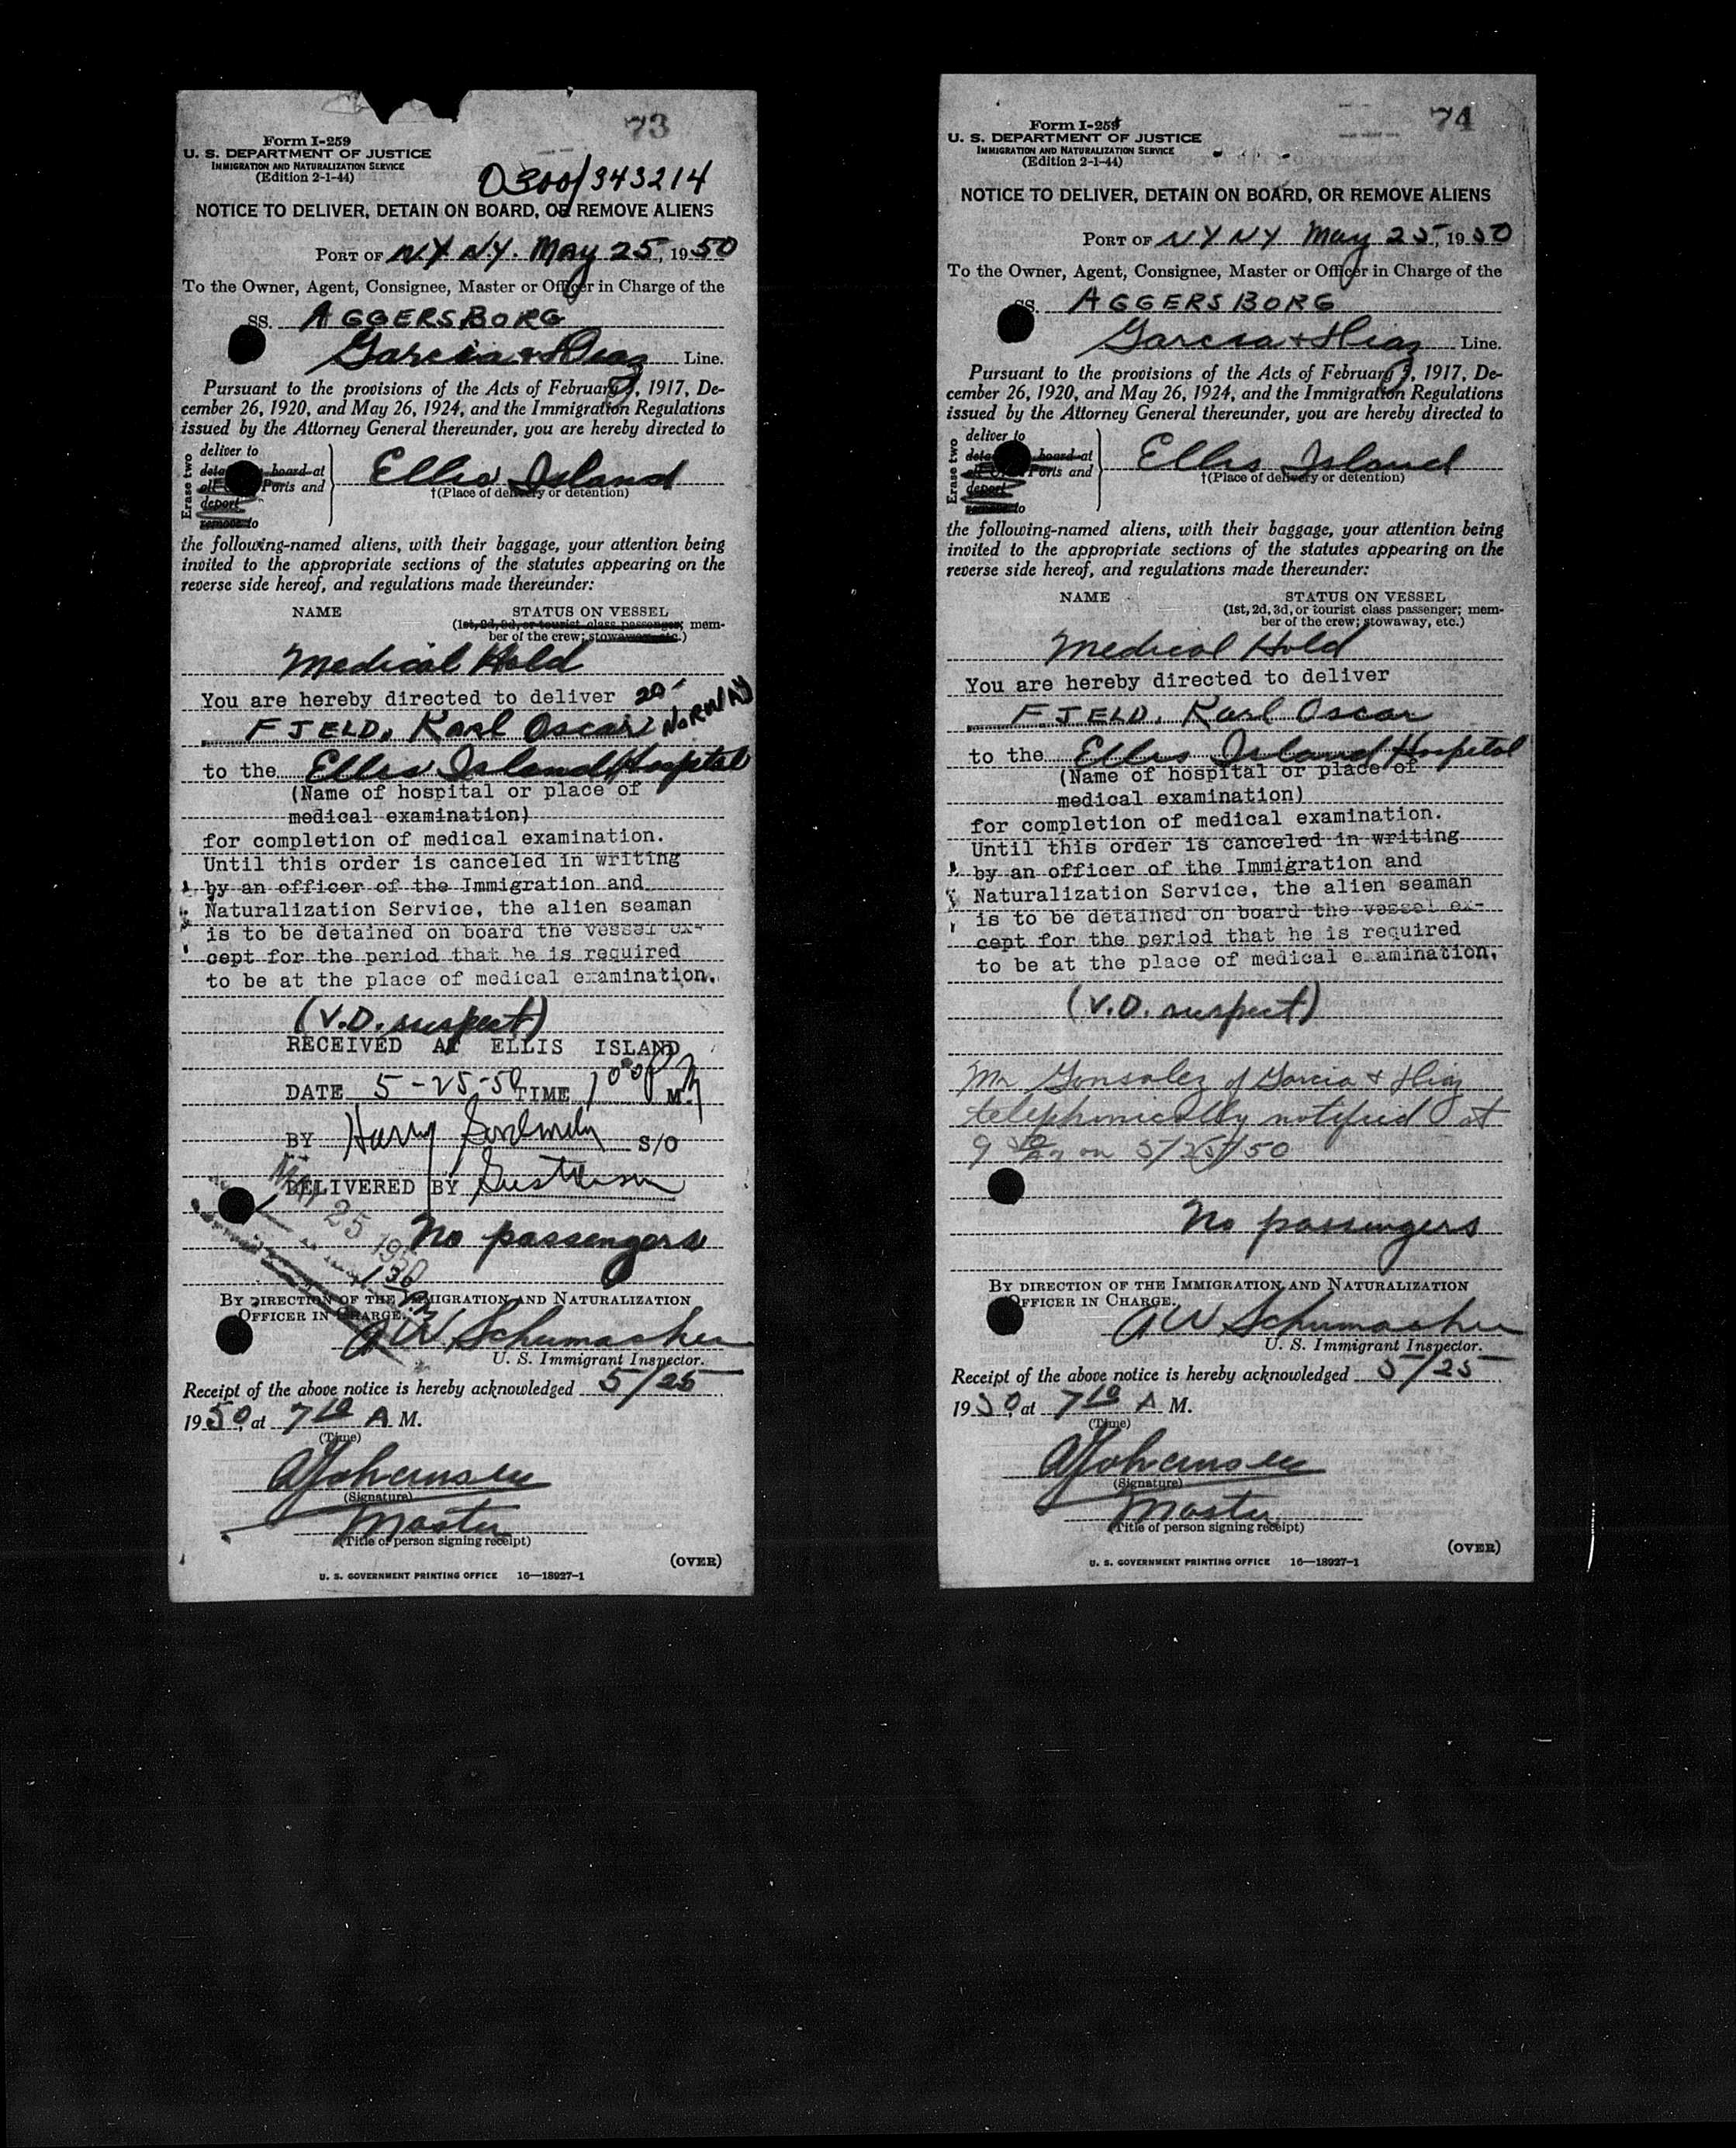 73
Form I-259
U. S. DEPARTMENT OF JUSTICE
IMMIGRATION AND NATURALIZATION SERVICE
(Edition 2-1-44)
0300/343214
NOTICE TO DELIVER, DETAIN ON BOARD, OR REMOVE ALIENS
PORT OF N.Y N.Y. May 25, 1950
To the Owner, Agent, Consignee, Master or Officer in Charge of the
SS. AGGERSBORG
Garcia & Diaz Line.
Pursuant to the provisions of the Acts of February 5, 1917, De-
cember 26, 1920, and May 26, 1924, and the Immigration Regulations
issued by the Attorney General thereunder, you are hereby directed to
Erase two
deliver to
board at
Ports and
deport
remove to
Ellis Island
†(Place of delivery or detention)
the following-named aliens, with their baggage, your attention being
invited to the appropriate sections of the statutes appearing on the
reverse side hereof, and regulations made thereunder:
NAME STATUS ON VESSEL
(1st, 2d, 3d, or tourist class passenger; mem-
ber of the crew; stowaway, etc.)
Medical Hold
You are hereby directed to deliver 20-
FJELD, Karl Oscar NORWAY
to the Ellis Island Hospital
(Name of hospital or place of
medical examination)
for completion of medical examination.
Until this order is canceled in writing
by an officer of the Immigration and
Naturalization Service, the alien seaman
is to be detained on board the vessel ex-
cept for the period that he is required
to be at the place of medical examination.
(V.D. suspect)
RECEIVED AT ELLIS ISLAND
DATE 5-25-50 TIME 1 00 P M.
BY Harry S/O
DELIVERED BY
MAY 25 1950
No passengers
1 30
BY DIRECTION OF THE IMMIGRATION AND NATURALIZATION
OFFICER IN CHARGE.
A W Schumacher
U. S. Immigrant Inspector.
Receipt of the above notice is hereby acknowledged 5/25
1950, at 7 10 A M.
(Time)
A Johansen
(Signature)
Master
(Title of person signing receipt)
(OVER)
U. S. GOVERNMENT PRINTING OFFICE 16—18927-1
74
Form I-259
U. S. DEPARTMENT OF JUSTICE
IMMIGRATION AND NATURALIZATION SERVICE
(Edition 2-1-44)
NOTICE TO DELIVER, DETAIN ON BOARD, OR REMOVE ALIENS
PORT OF N Y N Y May 25, 1950
To the Owner, Agent, Consignee, Master or Officer in Charge of the
SS. AGGERSBORG
Garcia & Diaz Line.
Pursuant to the provisions of the Acts of February 5, 1917, De-
cember 26, 1920, and May 26, 1924, and the Immigration Regulations
issued by the Attorney General thereunder, you are hereby directed to
Erase two
deliver to
board at
Ports and
deport
remove to
Ellis Island
†(Place of delivery or detention)
the following-named aliens, with their baggage, your attention being
invited to the appropriate sections of the statutes appearing on the
reverse side hereof, and regulations made thereunder:
NAME STATUS ON VESSEL
(1st, 2d, 3d, or tourist class passenger; mem-
ber of the crew; stowaway, etc.)
Medical Hold
You are hereby directed to deliver
FJELD, Karl Oscar
to the Ellis Island Hospital
(Name of hospital or place of
medical examination)
for completion of medical examination.
Until this order is canceled in writing
by an officer of the Immigration and
Naturalization Service, the alien seaman
is to be detained on board the vessel ex-
cept for the period that he is required
to be at the place of medical examination.
(V.D. suspect)
Mr Gonsalez of Garcia & Diaz
telephonically notified at
9 on 5/25/50
No passengers
BY DIRECTION OF THE IMMIGRATION AND NATURALIZATION
OFFICER IN CHARGE.
A W Schumacher
U. S. Immigrant Inspector.
Receipt of the above notice is hereby acknowledged 5/25
1950, at 7 10 A M.
(Time)
A Johansen
(Signature)
Master
(Title of person signing receipt)
(OVER)
U. S. GOVERNMENT PRINTING OFFICE 16—18927-1